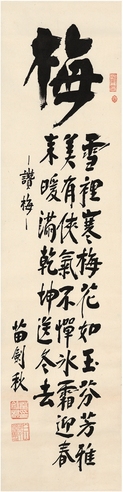 梅
雪裡寒梅花如玉芬芳雅
美有俠氣不憚冰霜迎春
來暖滿乾坤送冬去
—讚梅—
苗劍秋